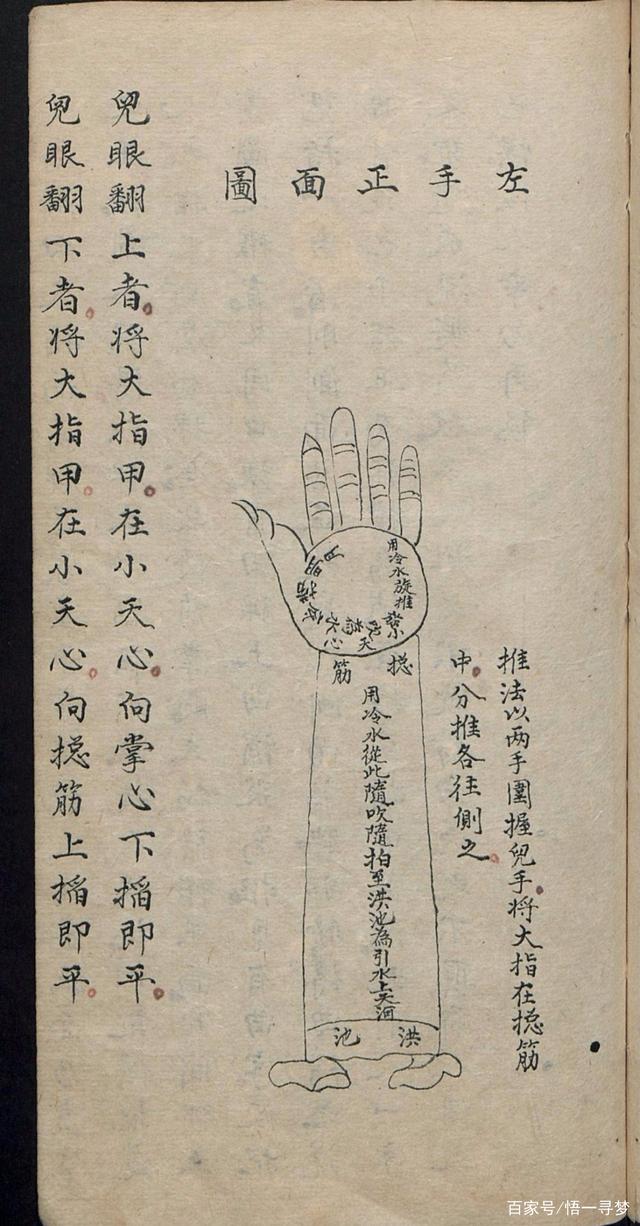 左手正面圖
推法以两手圍握兒手。将大指在捴筋
中。分推各往側之。
用冷水旋推
小天心
捴筋
用冷水從此隨吹隨拍至洪池為引水上天河
洪池
兒眼翻上者。将大指甲。在小天心。向掌心下掐即平。
兒眼翻下者。将大指甲。在小天心。向捴筋上掐即平。
百家号/悟一寻梦